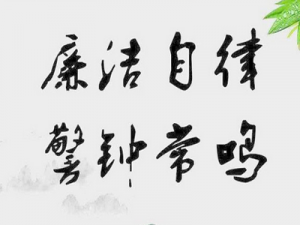 廉洁自律
警钟常鸣